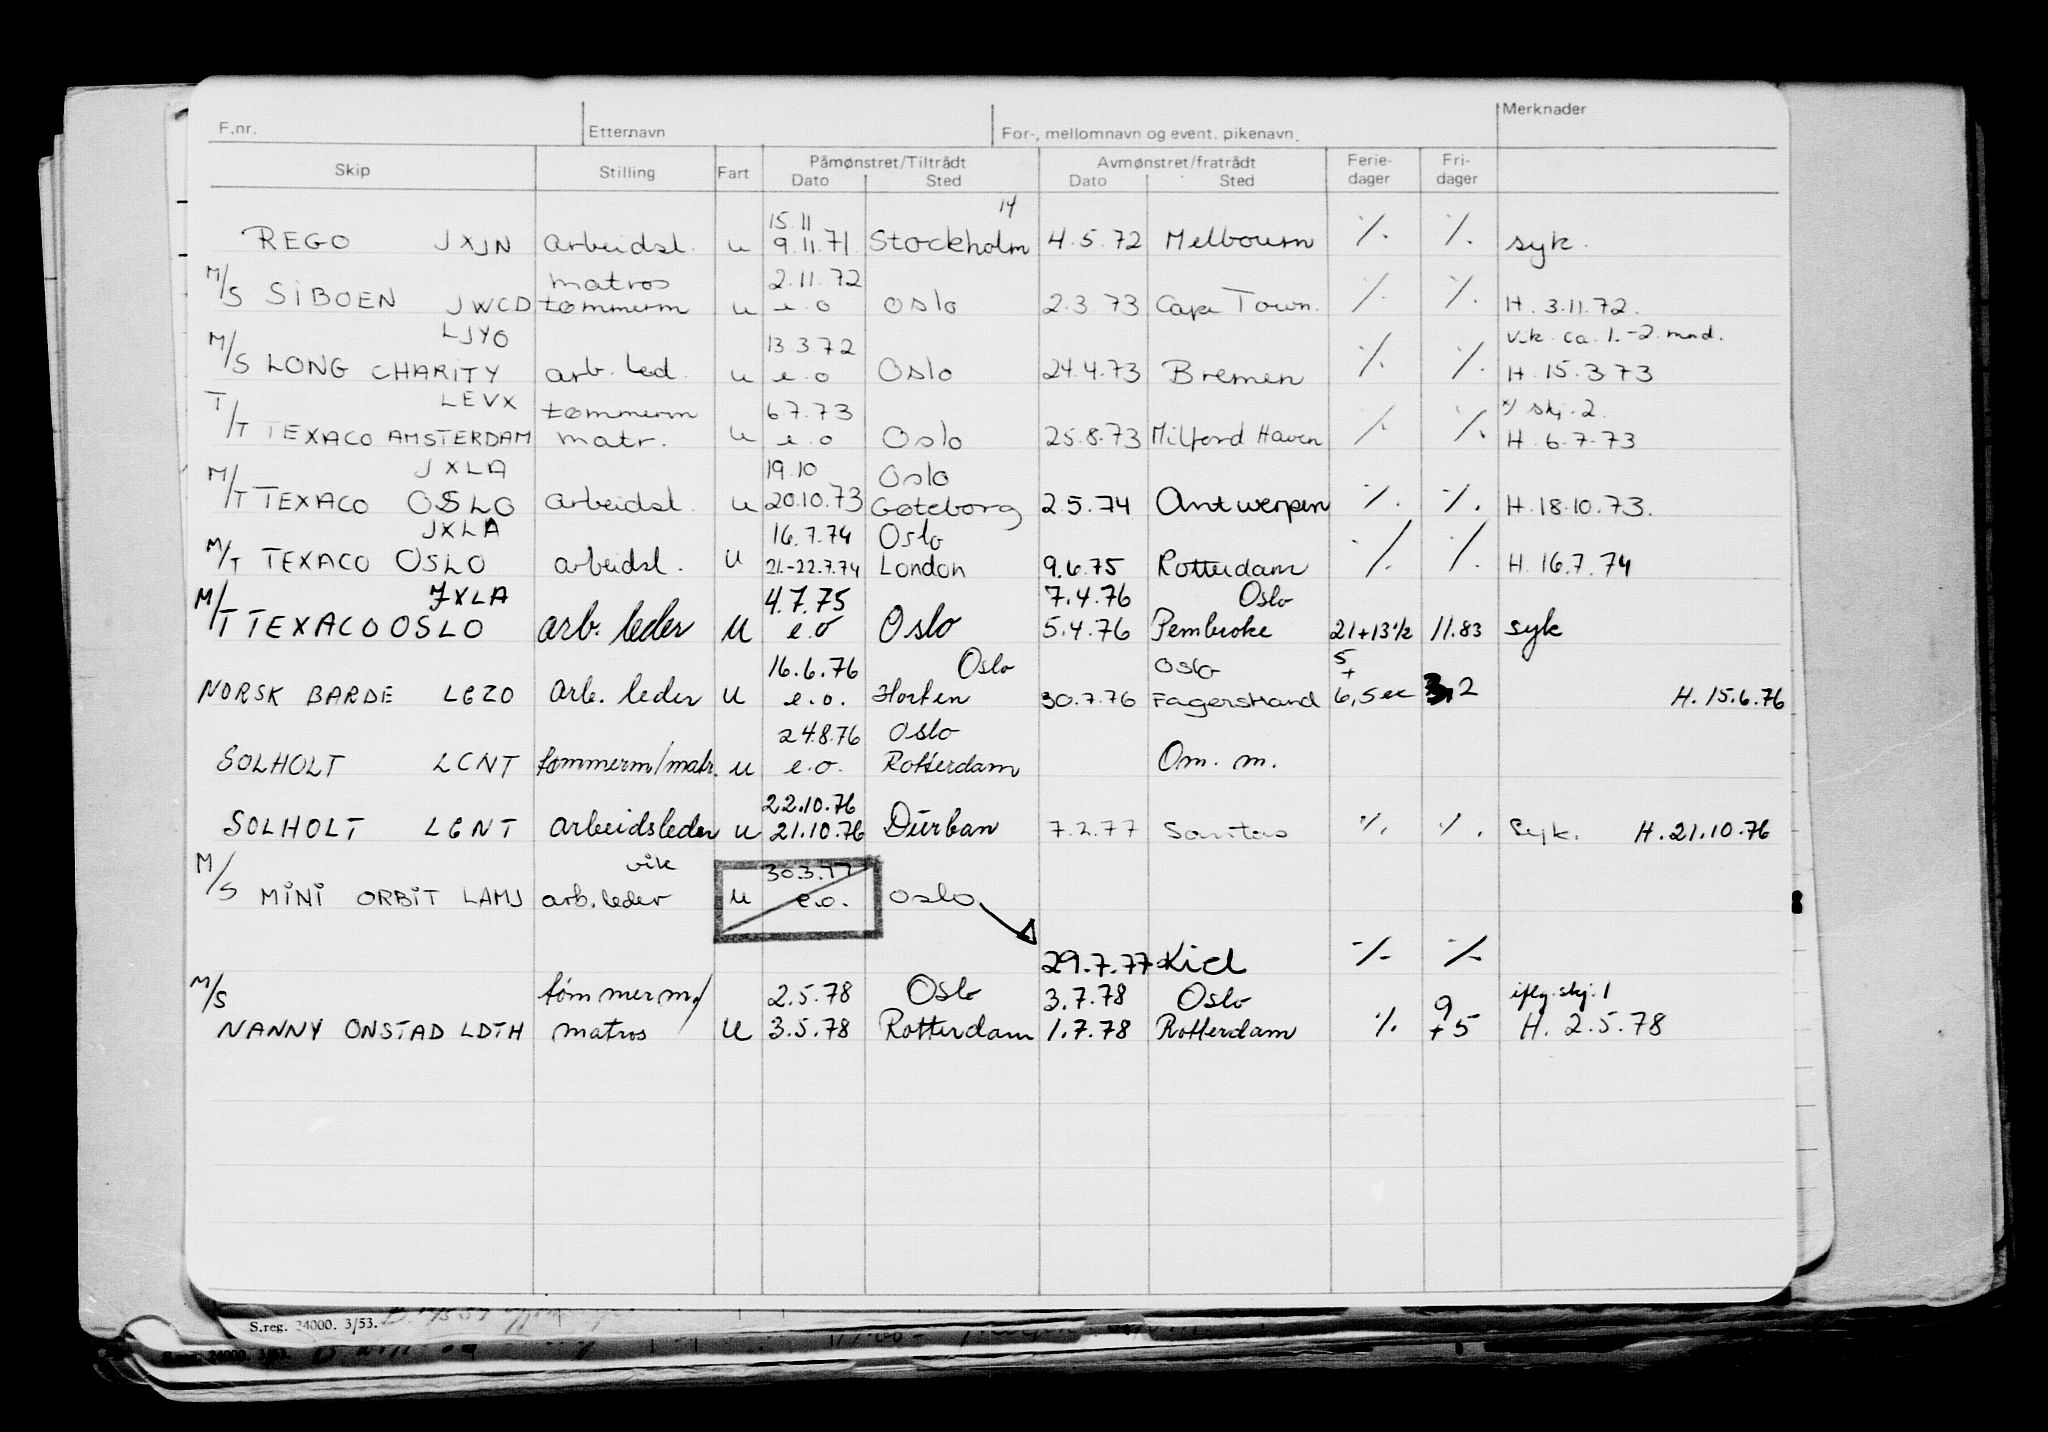 F.nr. Etternavn For-, mellomnavn og event. pikenavn. Merknader
Skip Stilling Fart Påmønstret/Tiltrådt Avmønstret/fratrådt Ferie- Fri-
Dato Sted Dato Sted dager dager
15.11 14
REGO JXJN arbeidsl. u 9.11.71. Stockholm 4.5.72 Melbourn ٪ ٪ syk.
M/S matros 2.11.72
SIBOEN JWCD tømmerm u e.o Oslo 2.3.73 Cape Town. ٪ ٪ H. 3.11.72.
LJYO 13.3.72 vik. ca. 1.-2. mnd.
M/S LONG CHARITY arb. led. u e.o Oslo 24.4.73 Bremen ٪ ٪ H. 15.3 73
LEVX tømmerm 6 7.73 x/ skj. 2.
T/T TEXACO AMSTERDAM matr. u e.o Oslo 25.8.73 Milford Haven ٪ ٪ H. 6.7.73
JXLA 19.10 Oslo
M/T TEXACO OSLO arbeidsl. u 20.10.73 Gøteborg 2.5.74 Antwerpen ٪ ٪ H.18.10.73.
JXLA 16.7.74 Oslo
M/T TEXACO OSLO arbeidsl. u 21.-22.7.74 London 9.6.75 Rotterdam ٪ ٪ H. 16.7.74
JXLA 4.7.75 7.4.76 Oslo
M/T TEXACO OSLO arb. leder u e.o Oslo 5.4.76 Pembroke 21+13½ 11.83 syk
16.6.76 Oslo Oslo 5
+
NORSK BARDE LEZO arb. leder u e.o. Horten 30.7.76 Fagerstrand 6,5 3,2 H. 15.6.76
24.8.76 Oslo
SOLHOLT LCNT tømmerm/matr. u e.o. Rotterdam Om. m.
22.10.76
SOLHOLT LCNT arbeidsleder u 21.10.76 Durban 7.2.77 Santos ٪ ٪ Syk. H.21.10.76
vik 30.3.77
M/S MINI ORBIT LAMJ arb.leder u e.o. Oslo
29.7.77 Kiel ٪ ٪
M/S tømmerm/ 2.5.78 Oslo 3.7.78 Oslo 9 iflg. skj. 1
NANNY ONSTAD LDTH matros u 3.5.78 Rotterdam 1.7.78 Rotterdam ٪ +5 H. 2.5.78
S.reg. 24000. 3/53.